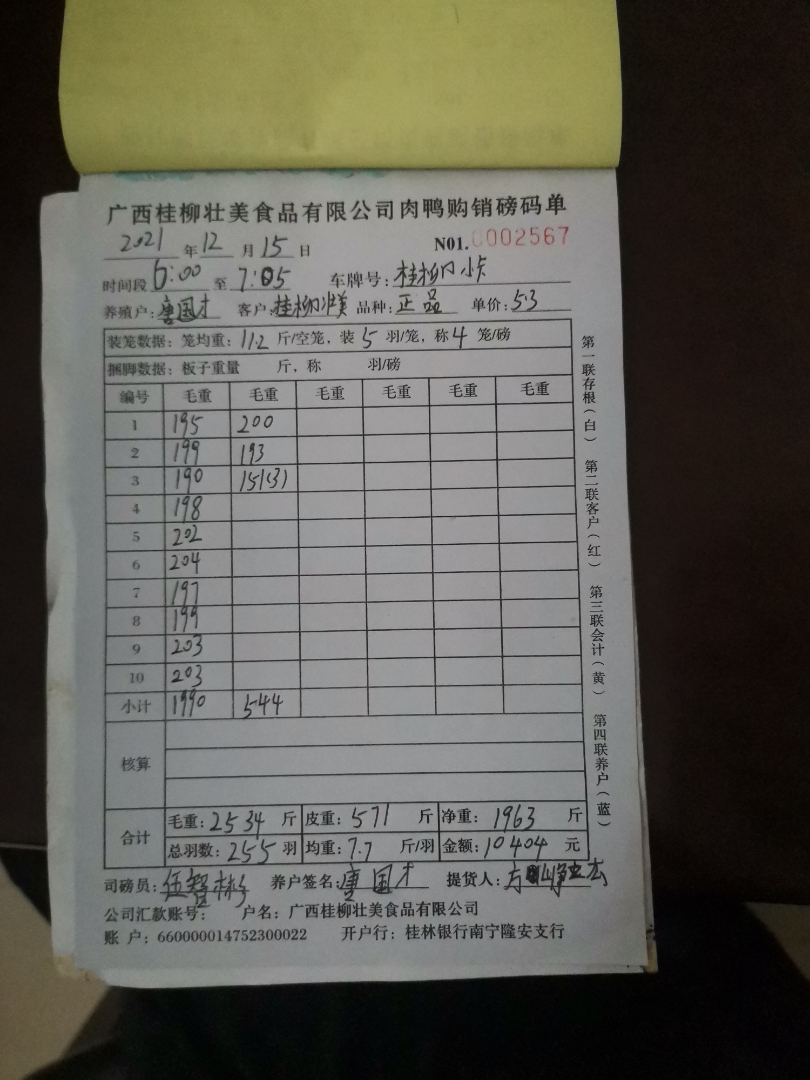 广西桂柳壮美食品有限公司肉鸭购销磅码单
2021 年 12 月 15 日 N01.0002567
时间段 6:00 至 7:05 车牌号: 桂柳 小卡
养殖户: 唐国才 客户: 桂柳壮美 品种: 正品 单价: 5.3
装笼数据: 笼均重: 11.2 斤/空笼, 装 5 羽/笼, 称 4 笼/磅
捆脚数据: 板子重量 斤, 称 羽/磅
编号 毛重 毛重 毛重 毛重 毛重
1 195 200
2 199 193
3 190 151(3)
4 198
5 202
6 204
7 197
8 199
9 203
10 203
小计 1990 544
核算
合计 毛重: 2534 斤 皮重: 571 斤 净重: 1963 斤
总羽数: 255 羽 均重: 7.7 斤/羽 金额: 10404 元
司磅员: 伍智彬 养户签名: 唐国才 提货人:
公司汇款账号: 户名: 广西桂柳壮美食品有限公司
账 户: 660000014752300022 开户行: 桂林银行南宁隆安支行
第一联存根(白) 第二联客户(红) 第三联会计(黄) 第四联养户(蓝)